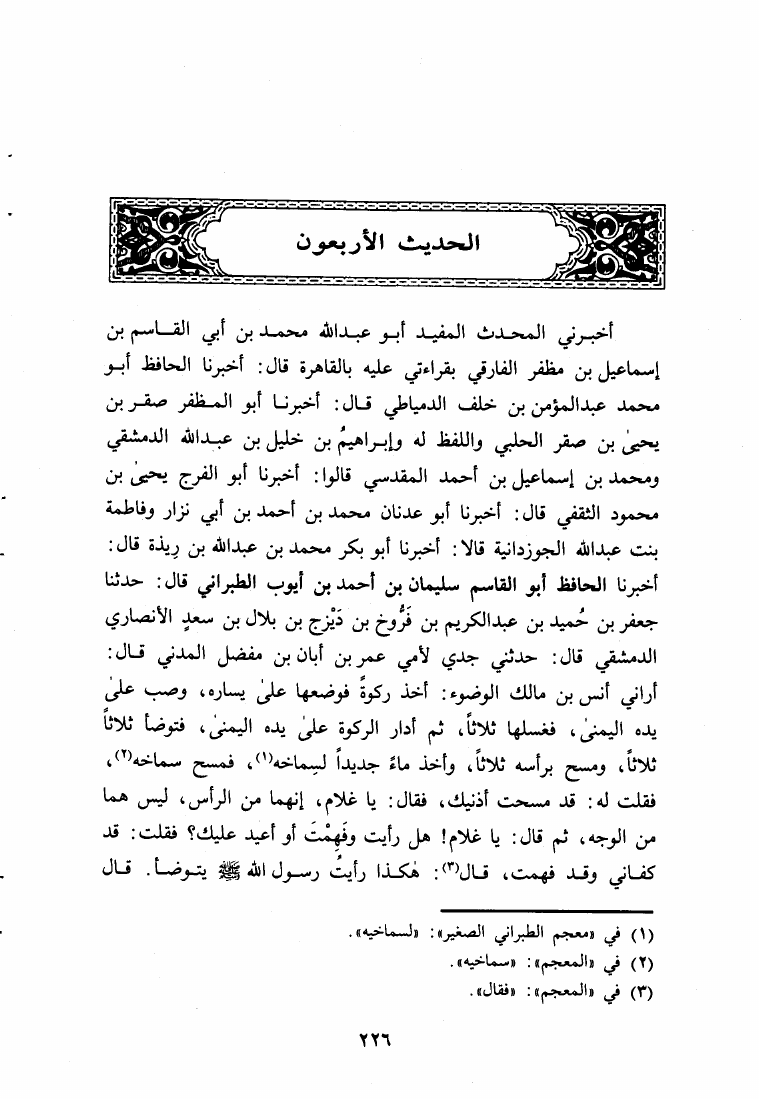 الحديث الأربعون
أخبرني المحدث المفيد أبو عبدالله محمد بن أبي القاسم بن
إسماعيل بن مظفر الفارقي بقراءتي عليه بالقاهرة قال: أخبرنا الحافظ أبو
محمد عبدالمؤمن بن خلف الدمياطي قال: أخبرنا أبو المظفر صقر بن
يحيىٰ بن صقر الحلبي واللفظ له وإبراهيمُ بن خليل بن عبدالله الدمشقي
ومحمد بن إسماعيل بن أحمد المقدسي قالوا: أخبرنا أبو الفرج يحيىٰ بن
محمود الثقفي قال: أخبرنا أبو عدنان محمد بن أحمد بن أبي نزار وفاطمة
بنت عبدالله الجوزدانية قالا: أخبرنا أبو بكر محمد بن عبدالله بن رِيذة قال:
أخبرنا الحافظ أبو القاسم سليمان بن أحمد بن أيوب الطبراني قال: حدثنا
جعفر بن حُميد بن عبدالكريم بن فَرُّوخ بن دَيْزج بن بلال بن سعدٍ الأنصاري
الدمشقي قال: حدثني جدي لأمي عمر بن أبان بن مفضل المدني قال:
أراني أنس بن مالك الوضوء: أخذ ركوةً فوضعها علىٰ يساره، وصب علىٰ
يده اليمنىٰ، فغسلها ثلاثاً، ثم أدار الركوة علىٰ يده اليمنىٰ، فتوضأ ثلاثاً
ثلاثاً، ومسح برأسه ثلاثاً، وأخذ ماءً جديداً لسِماخه(١)، فمسح سماخه(٢)،
فقلت له: قد مسحت أذنيك، فقال: يا غلام، إنهما من الرأس، ليس هما
من الوجه، ثم قال: يا غلام! هل رأيت وفَهِمْتَ أو أعيد عليك؟ فقلت: قد
كفاني وقد فهمت، قال(٣): هٰكذا رأيتُ رسول الله ﷺ يتوضأ. قال
(١) في «معجم الطبراني الصغير»: «لسماخيه».
(٢) في «المعجم»: «سماخيه».
(٣) في «المعجم»: «فقال».
٢٢٦